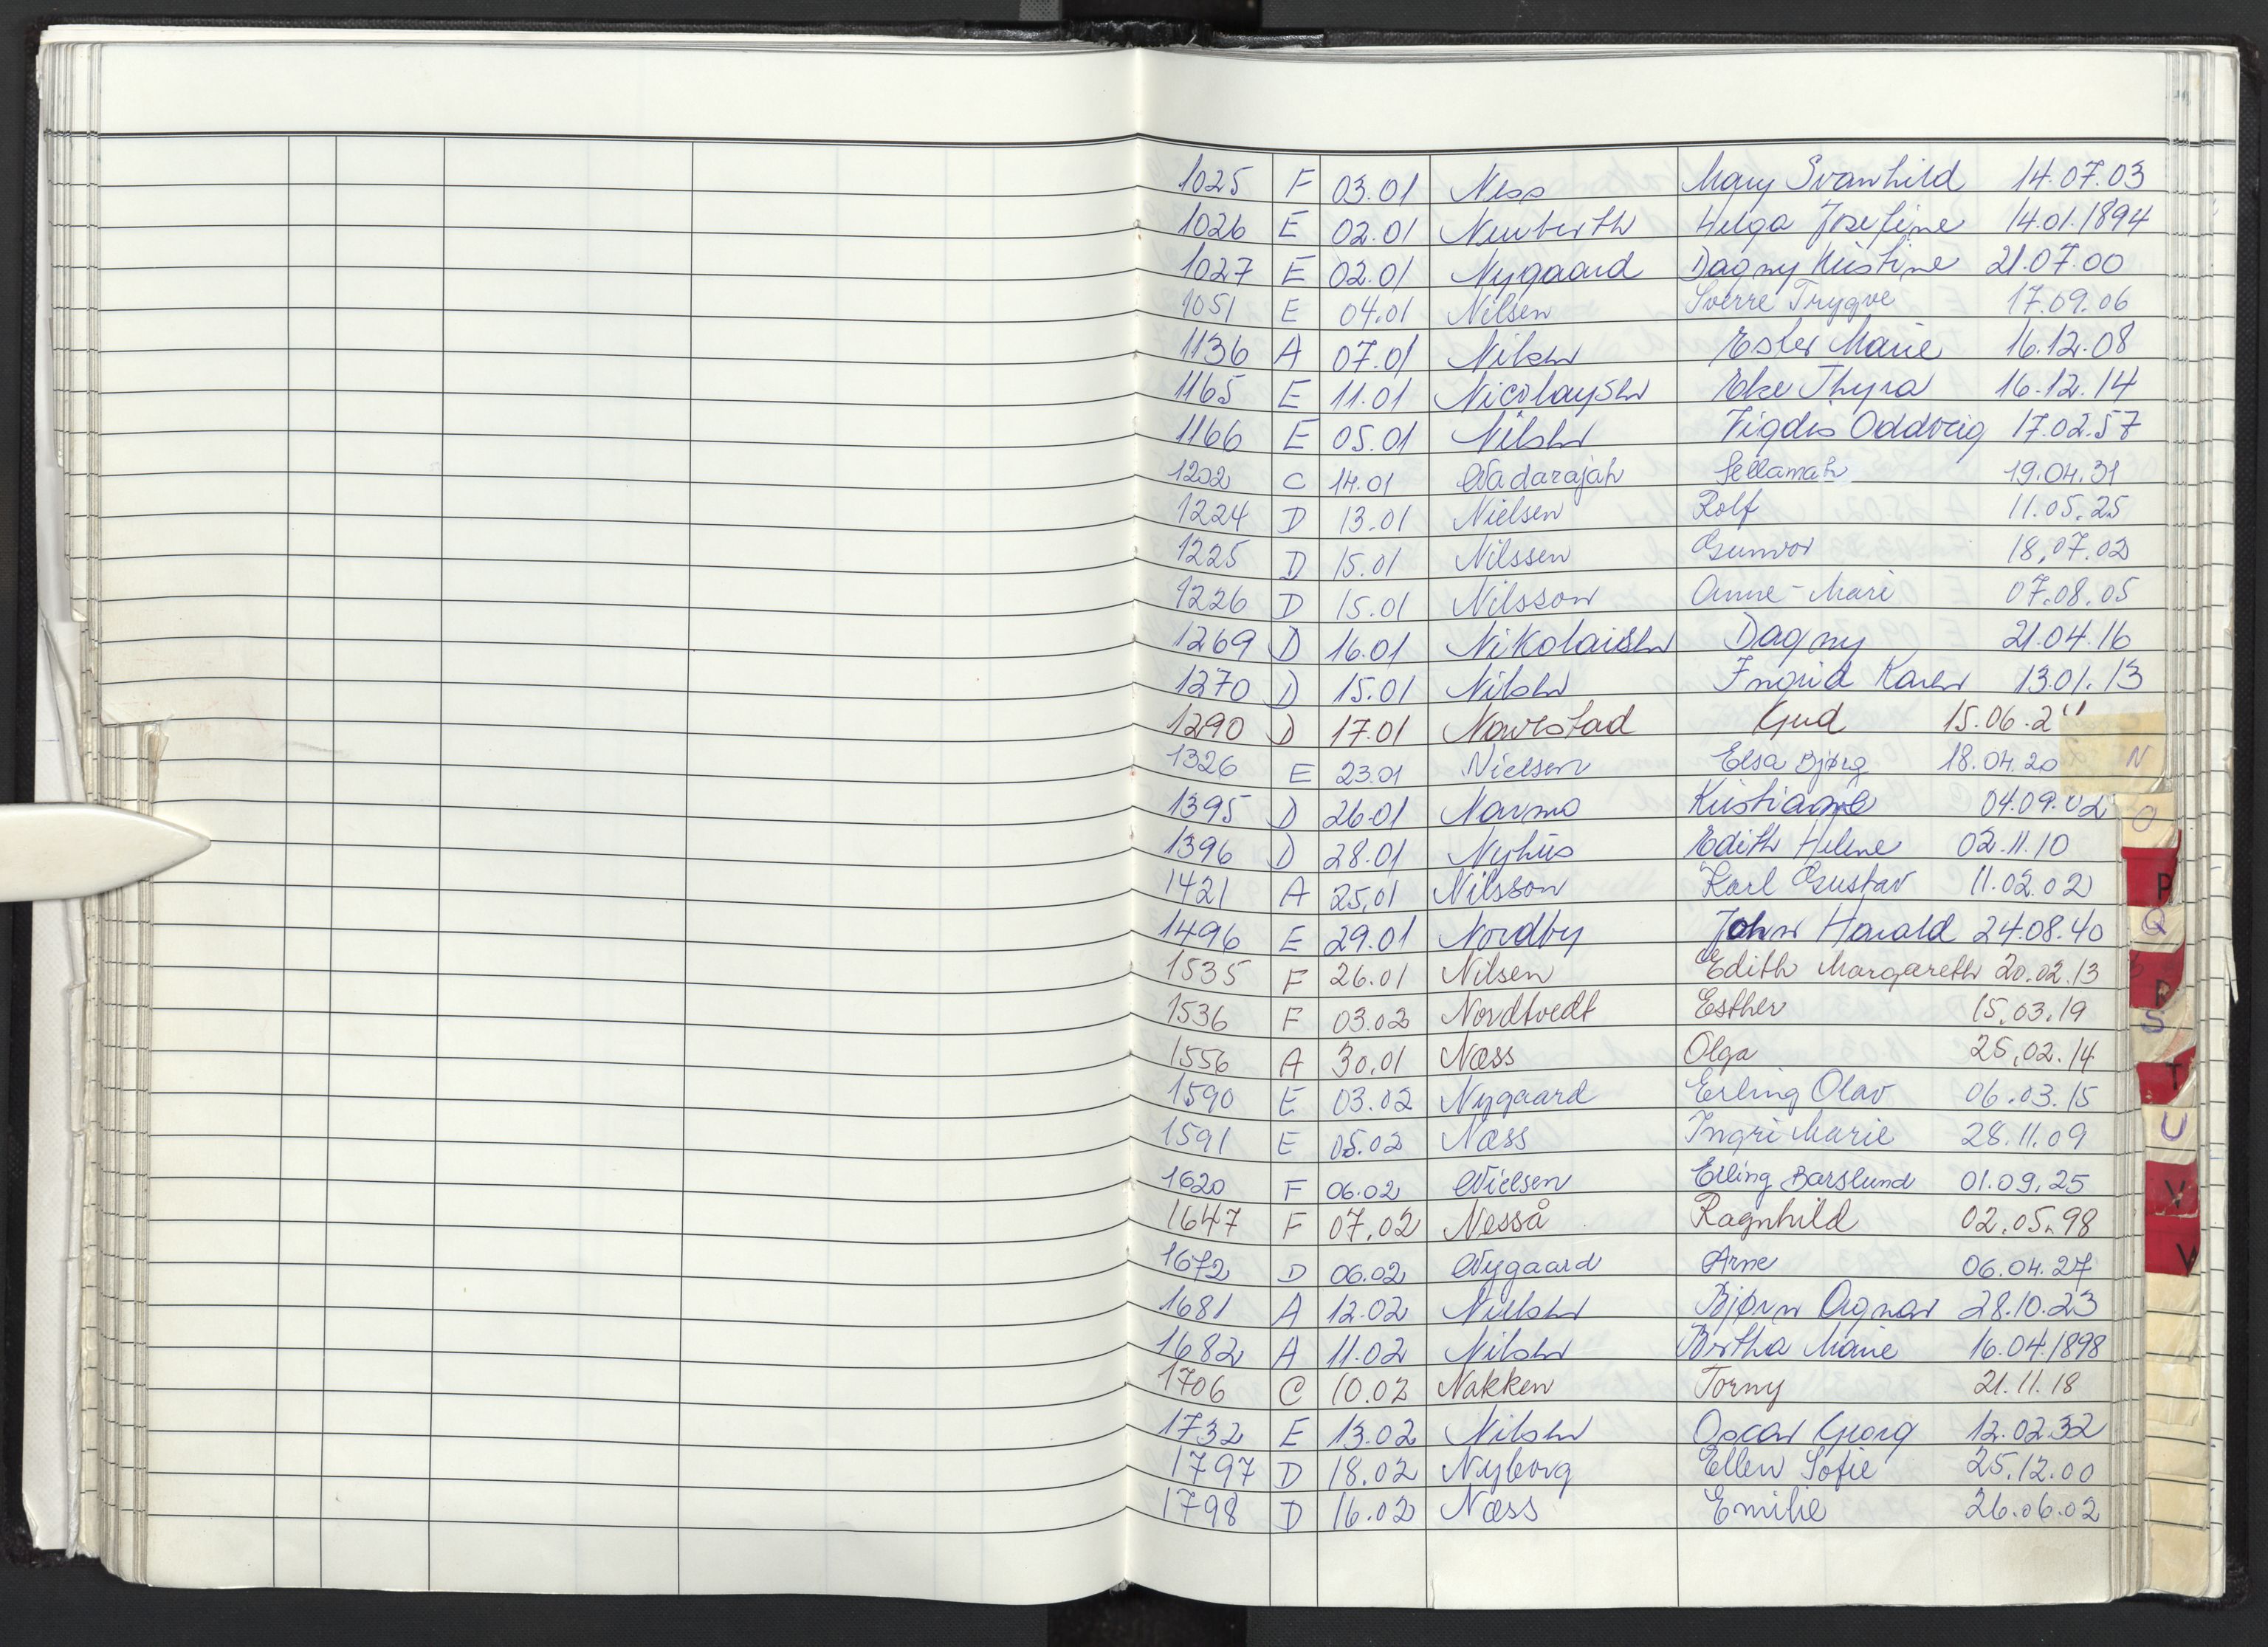 1025 F 03.01 Ness Mary Svanhild 14.07.03
1026 E 02.01 Neuberth Helga Josefine 14.01.1894
1027 E 02.01 Nygaard Dagny Kristine 21.07.00
1051 E 04.01 Nilsen Sverre Trygve 17.09.06
1136 A 07.01 Nilsen Ester Marie 16.12.08
1165 E 11.01 Nicolaysen Else Thyra 16.12.14
1166 E 05.01 Nilsen Vigdis Oddveig 17.02.57
1202 C 14.01 Nadarajah Sellamah 19.04.31
1224 D 13.01 Nielsen Rolf 11.05.25
1225 D 15.01 Nilssen Gunvor 18.07.02
1226 D 15.01 Nilsson Anne-Mari 07.08.05
1269 D 16.01 Nikolaisen Dagny 21.04.16
1270 D 15.01 Nilsen Ingrid Karen 13.01.13
1290 D 17.01 Navestad Gud 15.06.2
1326 E 23.01 Nielsen Elsa Bjørg 18.04.20
N
1395 D 26.01 Narmo Kristiane 04.09.02
O
1396 D 28.01 Nyhus Edith Helene 02.11.10
1421 A 25.01 Nilsson Karl Gustav 11.02.02
P
1496 E 29.01 Nordby John Harald 24.08.40
Q
1535 F 26.01 Nilsen Edith Margareth 20.02.13
R
1536 F 03.02 Nordtvedt Esther 15.03.19
S
1556 A 30.01 Næss Olga 25.02.14
T
1590 E 03.02 Nygaard Erling Olav 06.03.15
1591 E 05.02 Næss Ingri Marie 28.11.09
U
1620 F 06.02 Nielsen Erling Barslund 01.09.25
V
1647 F 07.02 Nesså Ragnhild 02.05.98
1672 D 06.02 Nygaard Arne 06.04.27
1681 A 12.02 Nielsen Bjørn Agnar 28.10.23
1682 A 11.02 Nilsen Bertha Marie 16.04.1898
1706 C 10.02 Nakken Torny 21.11.18
1732 E 13.02 Nilsen Oscar Georg 12.02.32
1797 D 18.02 Nyborg Ellen Sofie 25.12.00
1798 D 16.02 Næss Emilie 26.06.02